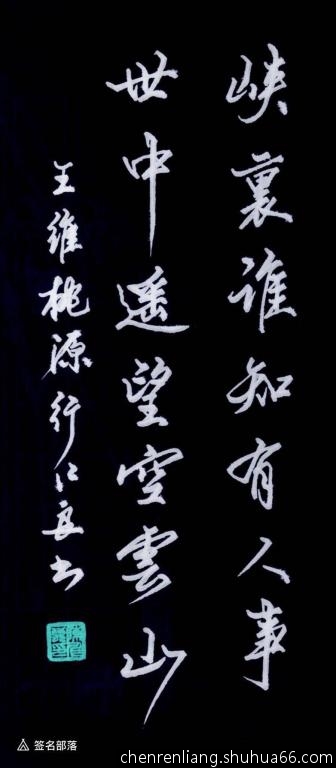 峡裏谁知有人事
世中遥望空雲山
王维桃源行仁良书
签名部落
chenrenliang.shuhua66.com